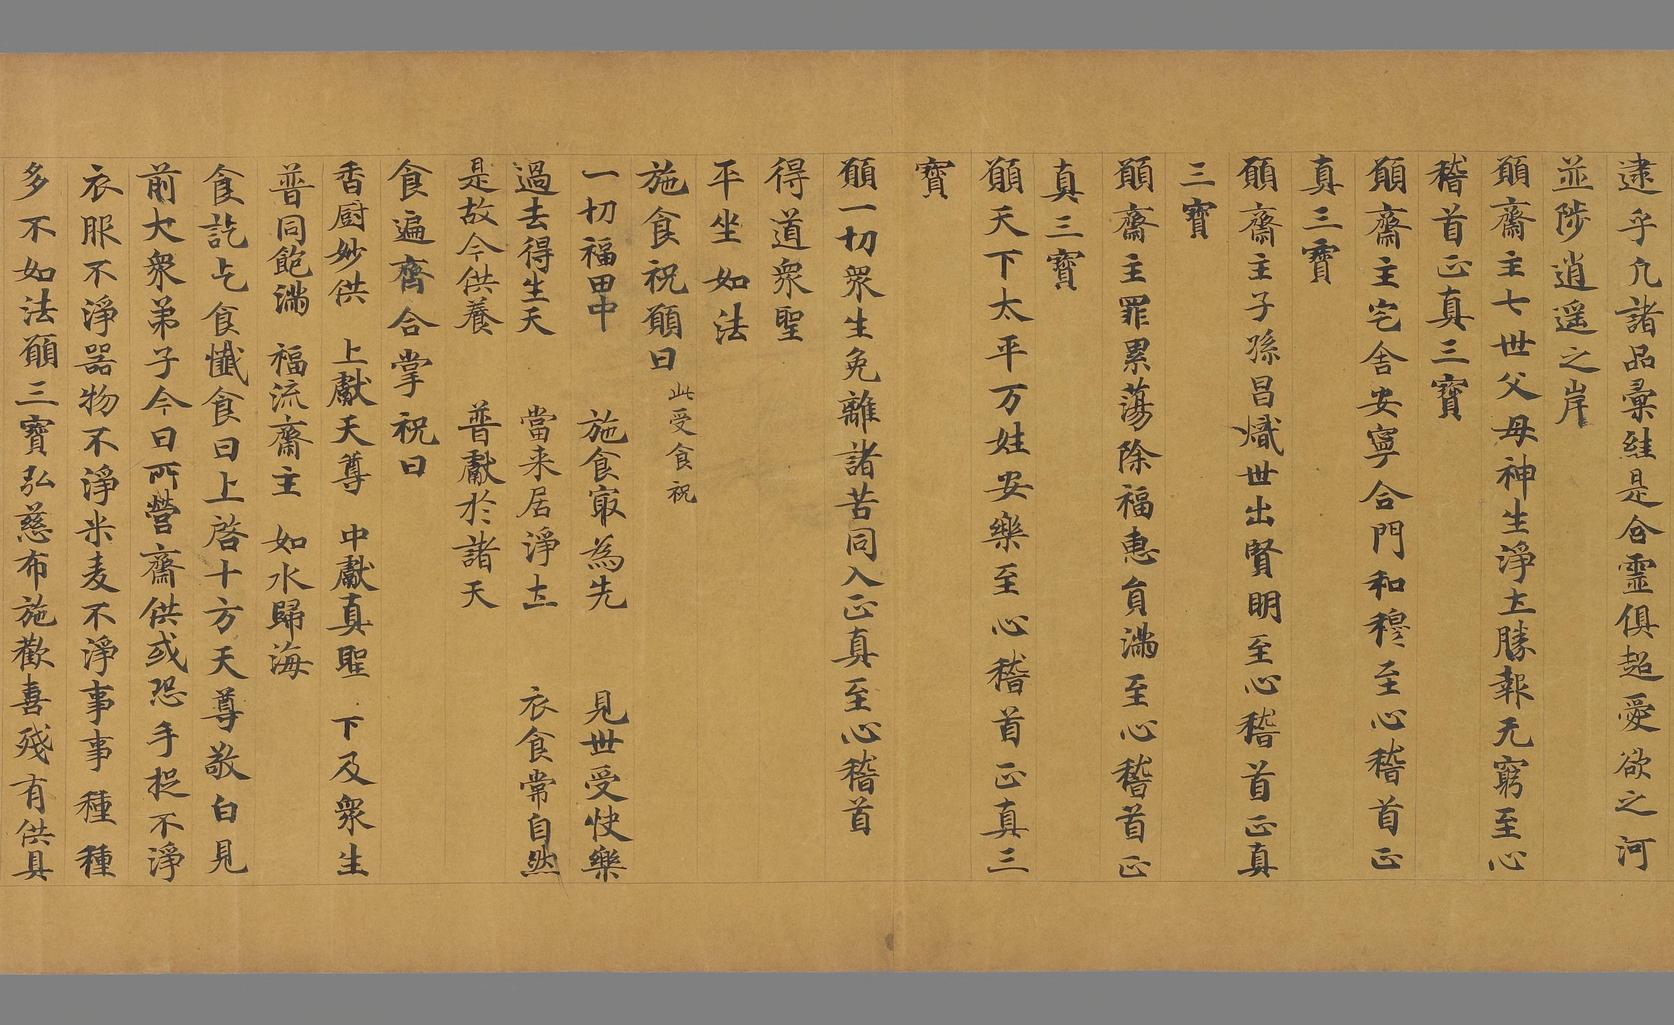 逮乎凢諸品彙絓是含靈俱超愛欲之河
並陟逍遥之岸
願齋主七世父母神生淨土勝報无窮至心
稽首正真三寶
願齋主宅舍安寧合門和穆至心稽首正
真三寶
願齋主子孫昌熾世出賢明至心稽首正真
三寶
願齋主罪累蕩除福惠負滿至心稽首正
真三寶
願天下太平万姓安樂至心稽首正真三
寶
願一切衆生免離諸苦同入正真至心稽首
得道衆聖
平坐如法
施食祝願曰 此受食祝
一切福田中 施食冣為先 見世受快樂
過去得生天 當来居淨土 衣食常自然
是故今供養 普獻於諸天
食遍齊合掌祝曰
香廚妙供 上獻天尊 中獻真聖 下及衆生
普同飽滿 福流齋主 如水歸海
食訖乞食懺食曰上啓十方天尊敬白見
前大衆弟子今日所營齋供或恐手捉不淨
衣服不淨器物不淨米麦不淨事事種種
多不如法願三寶弘慈布施歡喜殘有供具